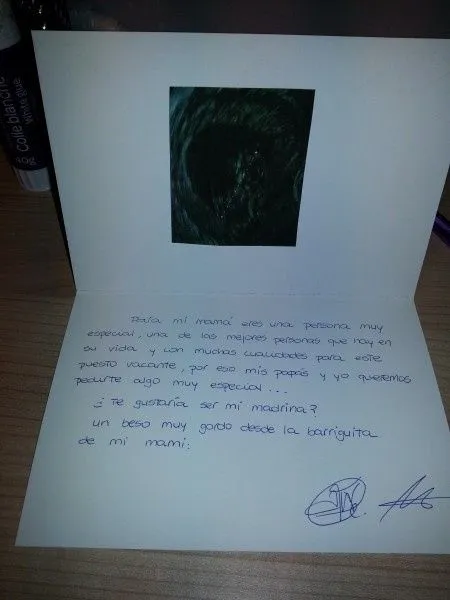 Colle blanche
White glue
Para mi mamá eres una persona muy
especial, una de las mejores personas que hay en
su vida y con muchas cualidades para este
puesto vacante, por eso mis papás y yo queremos
pedirte algo muy especial...
¿Te gustaría ser mi madrina?
un beso muy gordo desde la barriguita
de mi mami: